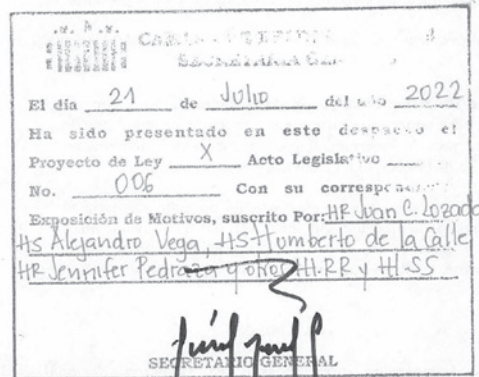 SECRETARIA
El día 21 de Julio del año 2022
Ha sido presentado en este despacho el
Proyecto de Ley X Acto Legislativo
No. 006 Con su
Exposición de Motivos, suscrito Por: HR Juan C. Lozada
HS Alejandro Vega, HS Humberto de la Calle
HR Jennifer Pedraza y otros HH.RR y HH.SS
SECRETARIO GENERAL